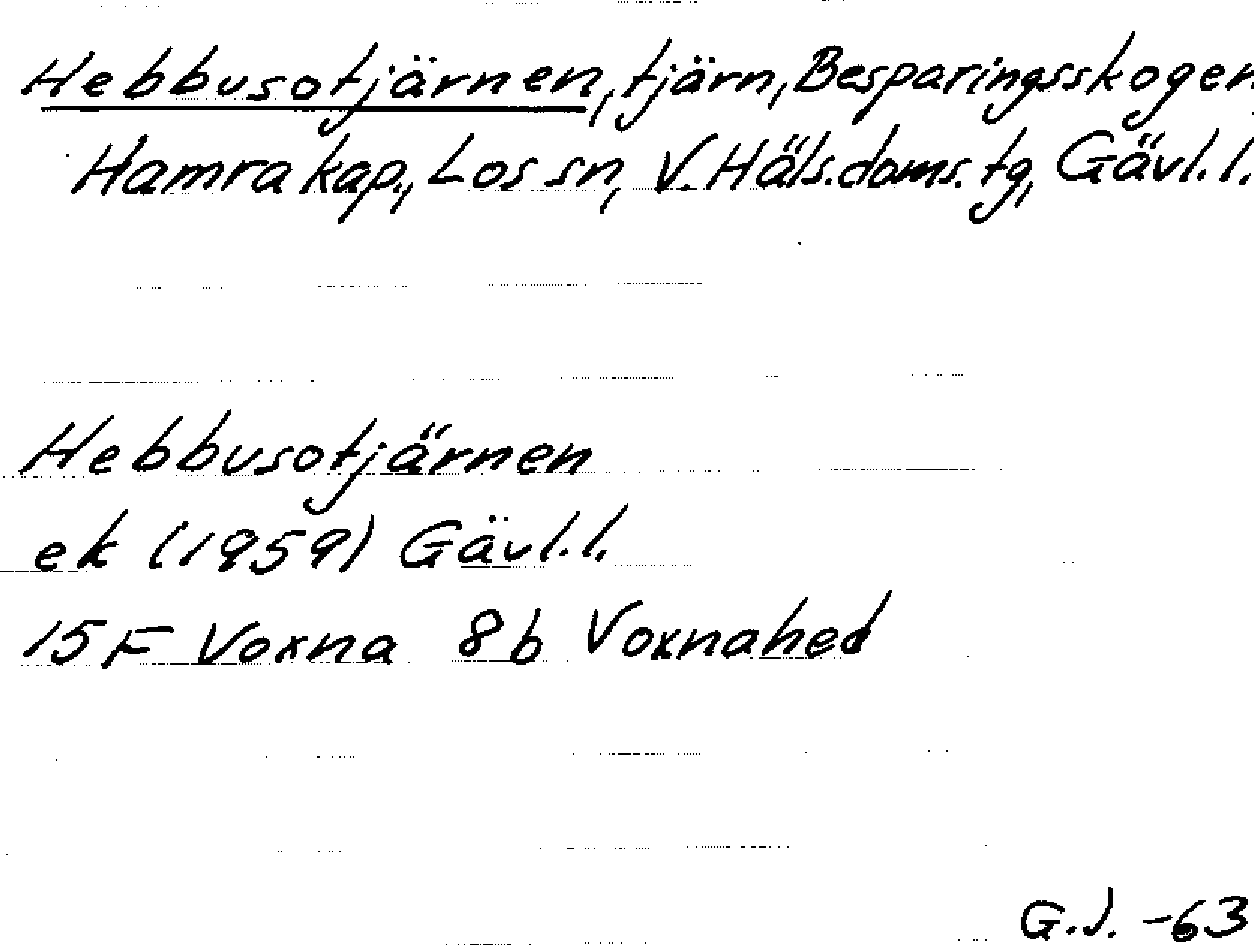 Hebbusotjärnen, tjärn, Besparingsskogen,
Hamra kap., Los sn, V. Häls. doms. tg, Gävl. l.
Hebbusotjärnen
ek (1959) Gävl. l.
15 F Voxna 8 b Voxnahed
G.J. -63